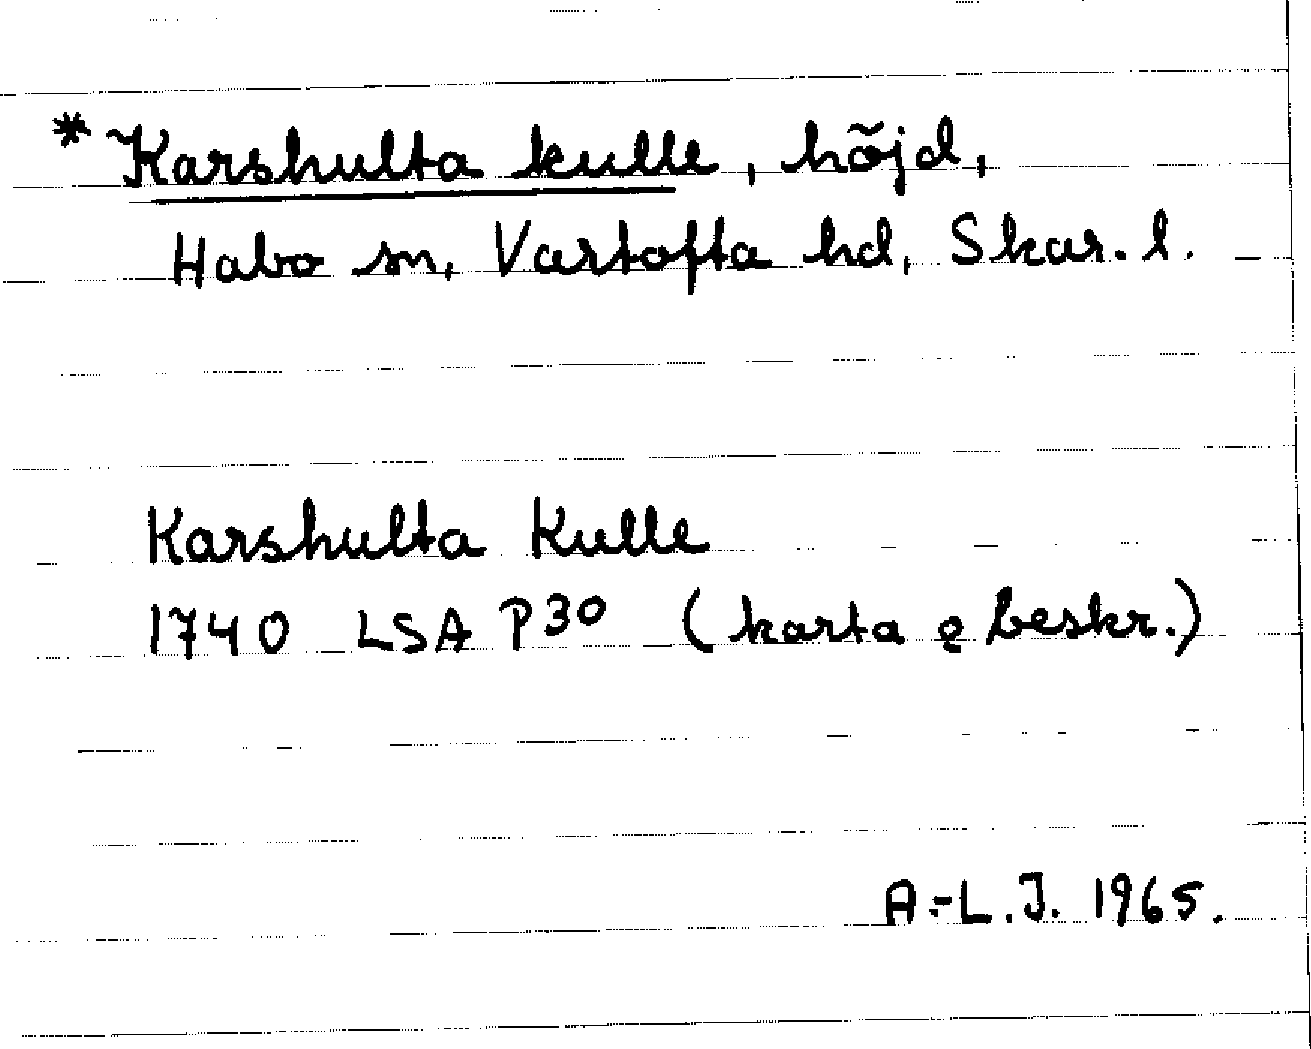 * Karshulta kulle, höjd,
Habo sn, Vartofta hd, Skar. l.
Karshulta Kulle
1740 LSA P30 (karta o beskr.)
A.-L. J. 1965.